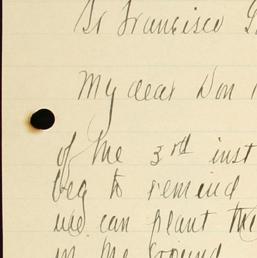 Sr Francisco G
My dear Don
of the 3rd inst
beg to remind
we can plant the
in the ground